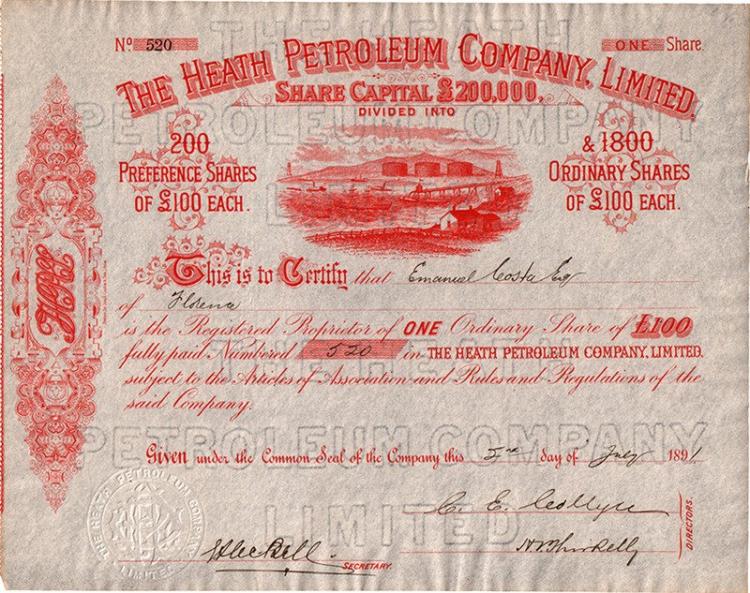 Nº 520
ONE Share.
THE HEATH PETROLEUM COMPANY, LIMITED.
SHARE CAPITAL £200,000,
DIVIDED INTO
200
PREFERENCE SHARES
OF £100 EACH.
& 1800
ORDINARY SHARES
OF £100 EACH.
This is to Certify that Emanuel Costa Esq
of Florence
is the Registered Proprietor of ONE Ordinary Share of £100
fully paid Numbered 520 in THE HEATH PETROLEUM COMPANY, LIMITED.
subject to the Articles of Association and Rules and Regulations of the
said Company.
Given under the Common Seal of the Company this day of July 1891
SECRETARY.
DIRECTORS.
THE HEATH PETROLEUM COMPANY
LIMITED
THE HEATH
PETROLEUM COMPANY
LIMITED
THE HEATH
PETROLEUM COMPANY
LIMITED